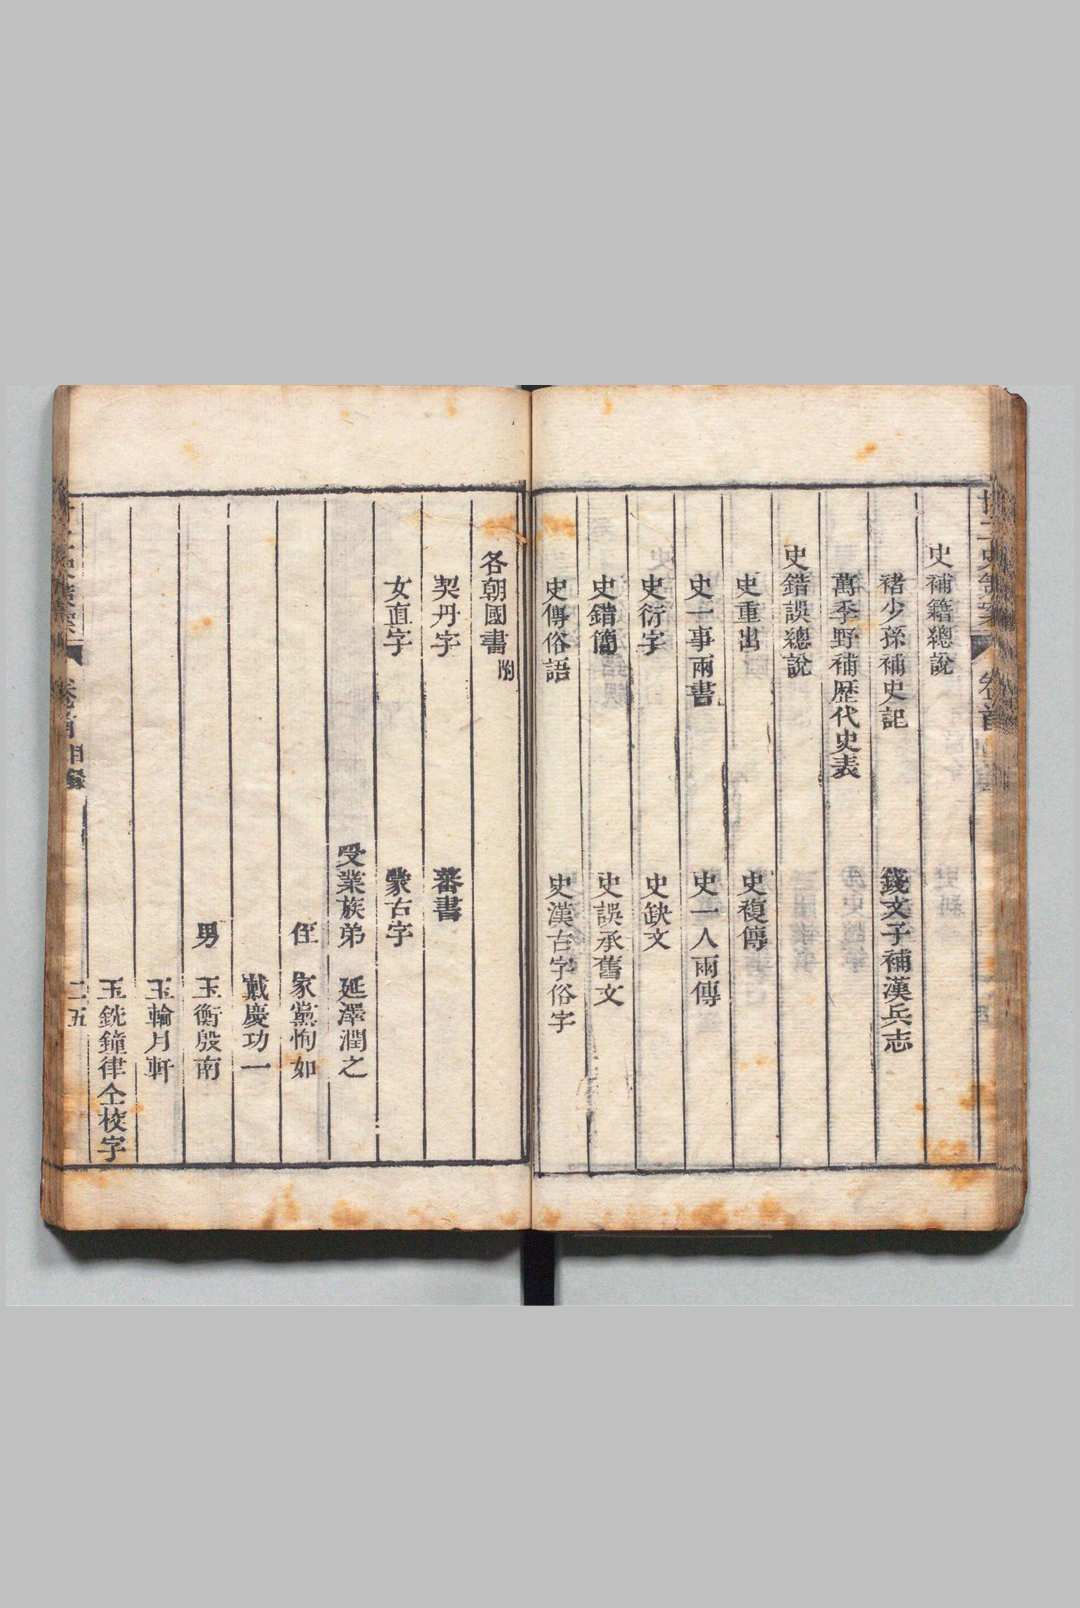 史補籍總說
褚少孫補史記　錢文子補漢兵志
萬季野補歷代史表
史錯誤總說
史重出　史複傳
史一事兩書　史一人兩傳
史衍字　史缺文
史錯簡　史誤承舊文
史傳俗語　史漢古字俗字
各朝國書附
契丹字　蕃書
女直字　蒙古字
受業族弟　延澤潤之
侄　家黨恂如
戴慶功一
男　玉衡殷南
玉輪月軒
玉銑鐘律仝校字
卷首目錄
二五